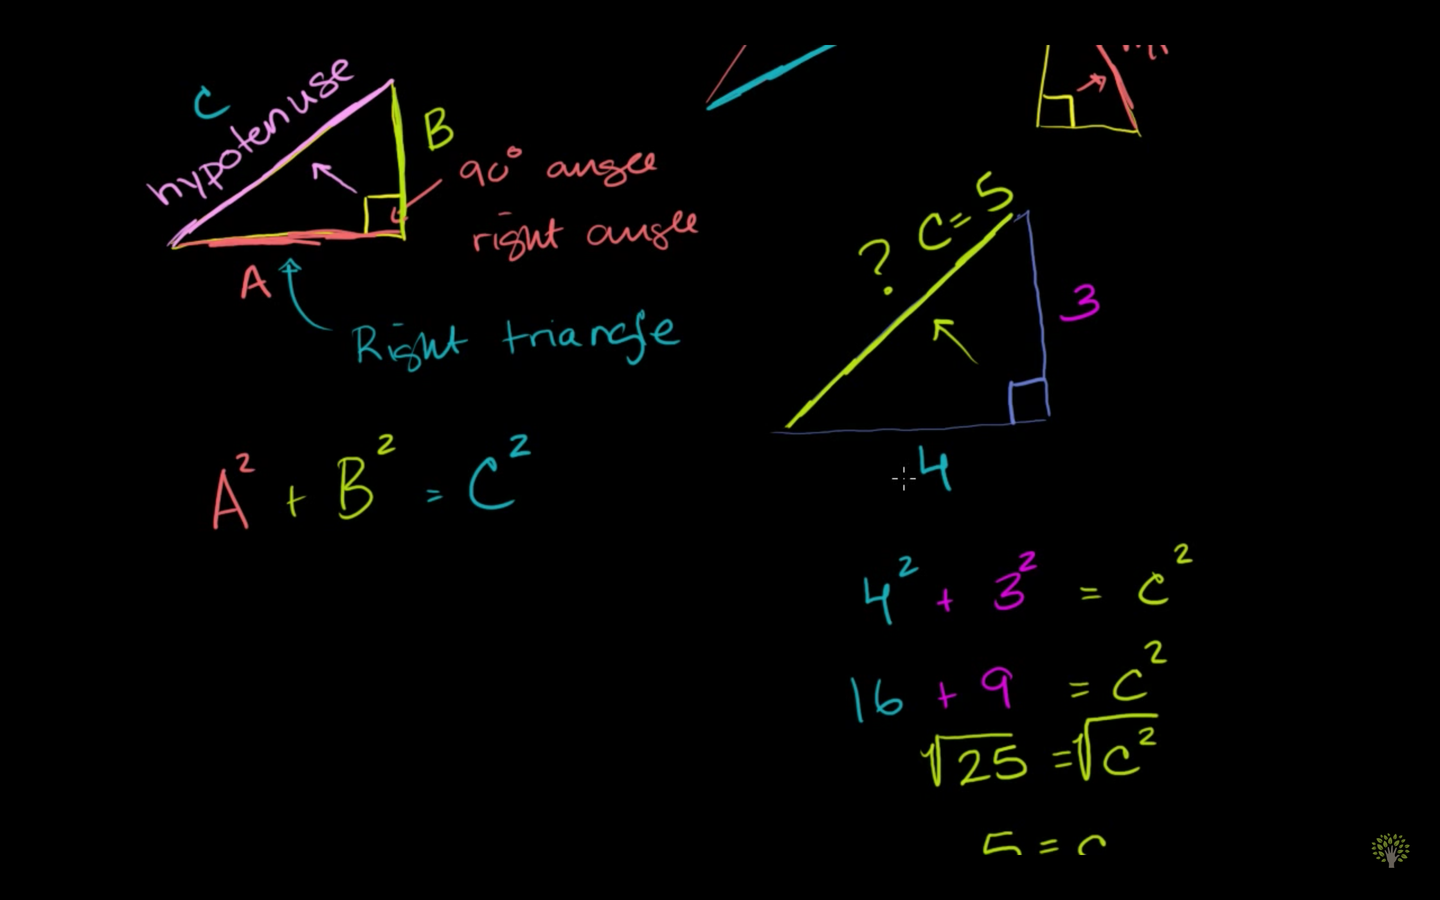 C
hypotenuse
B
90° angle
right angle
A
Right triangle
A² + B² = C²
? C = 5
3
4
4² + 3² = c²
16 + 9 = c²
√25 = √c²
5 = c